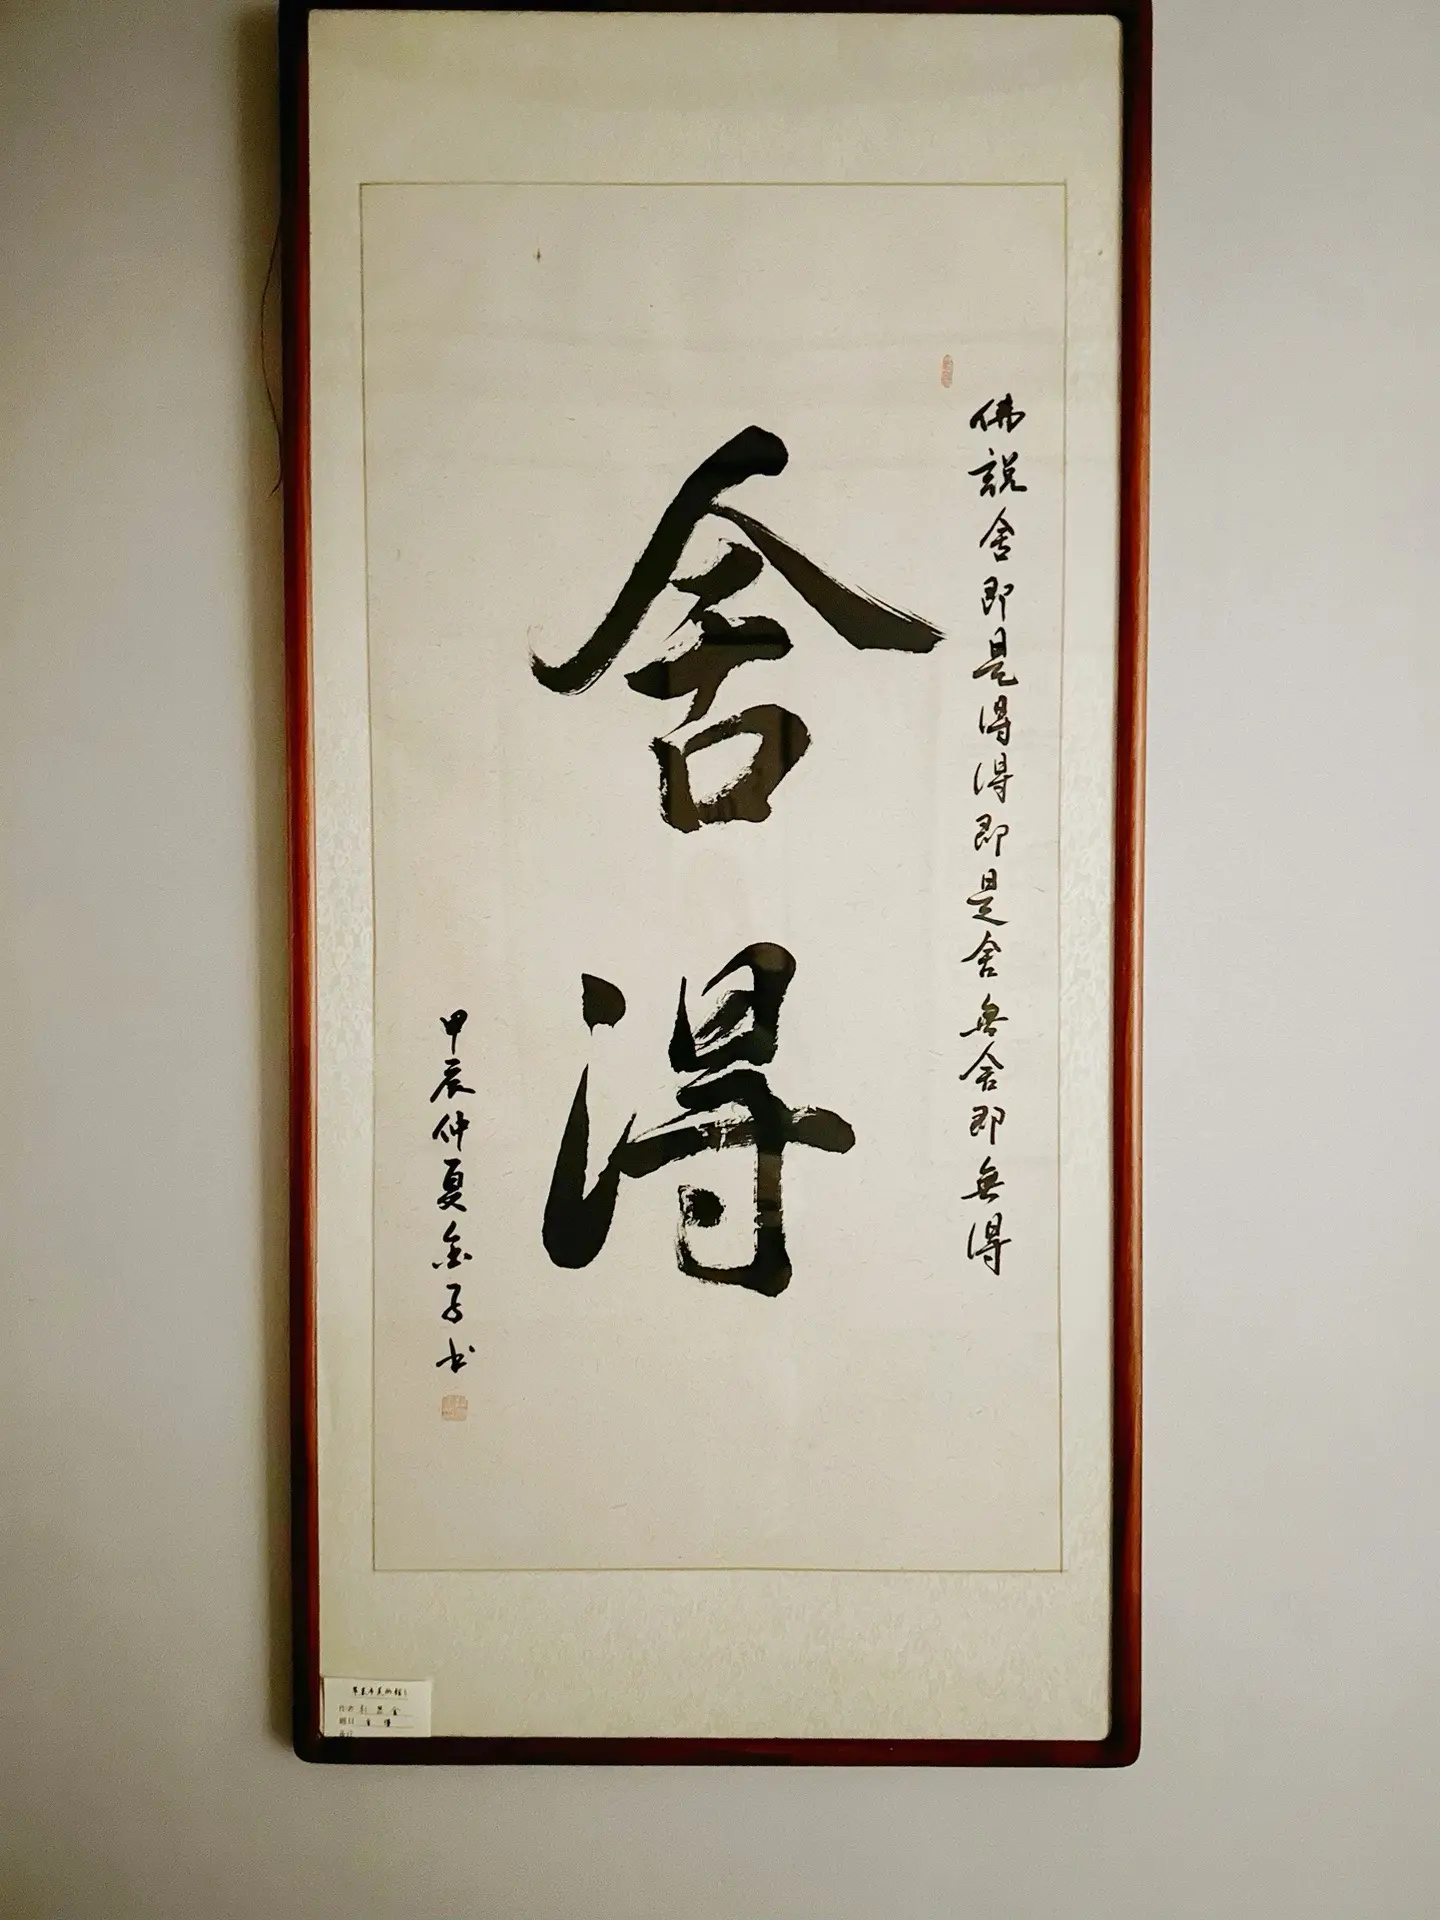 佛說舍即是得得即是舍無舍即無得
舍得
甲辰仲夏金子书